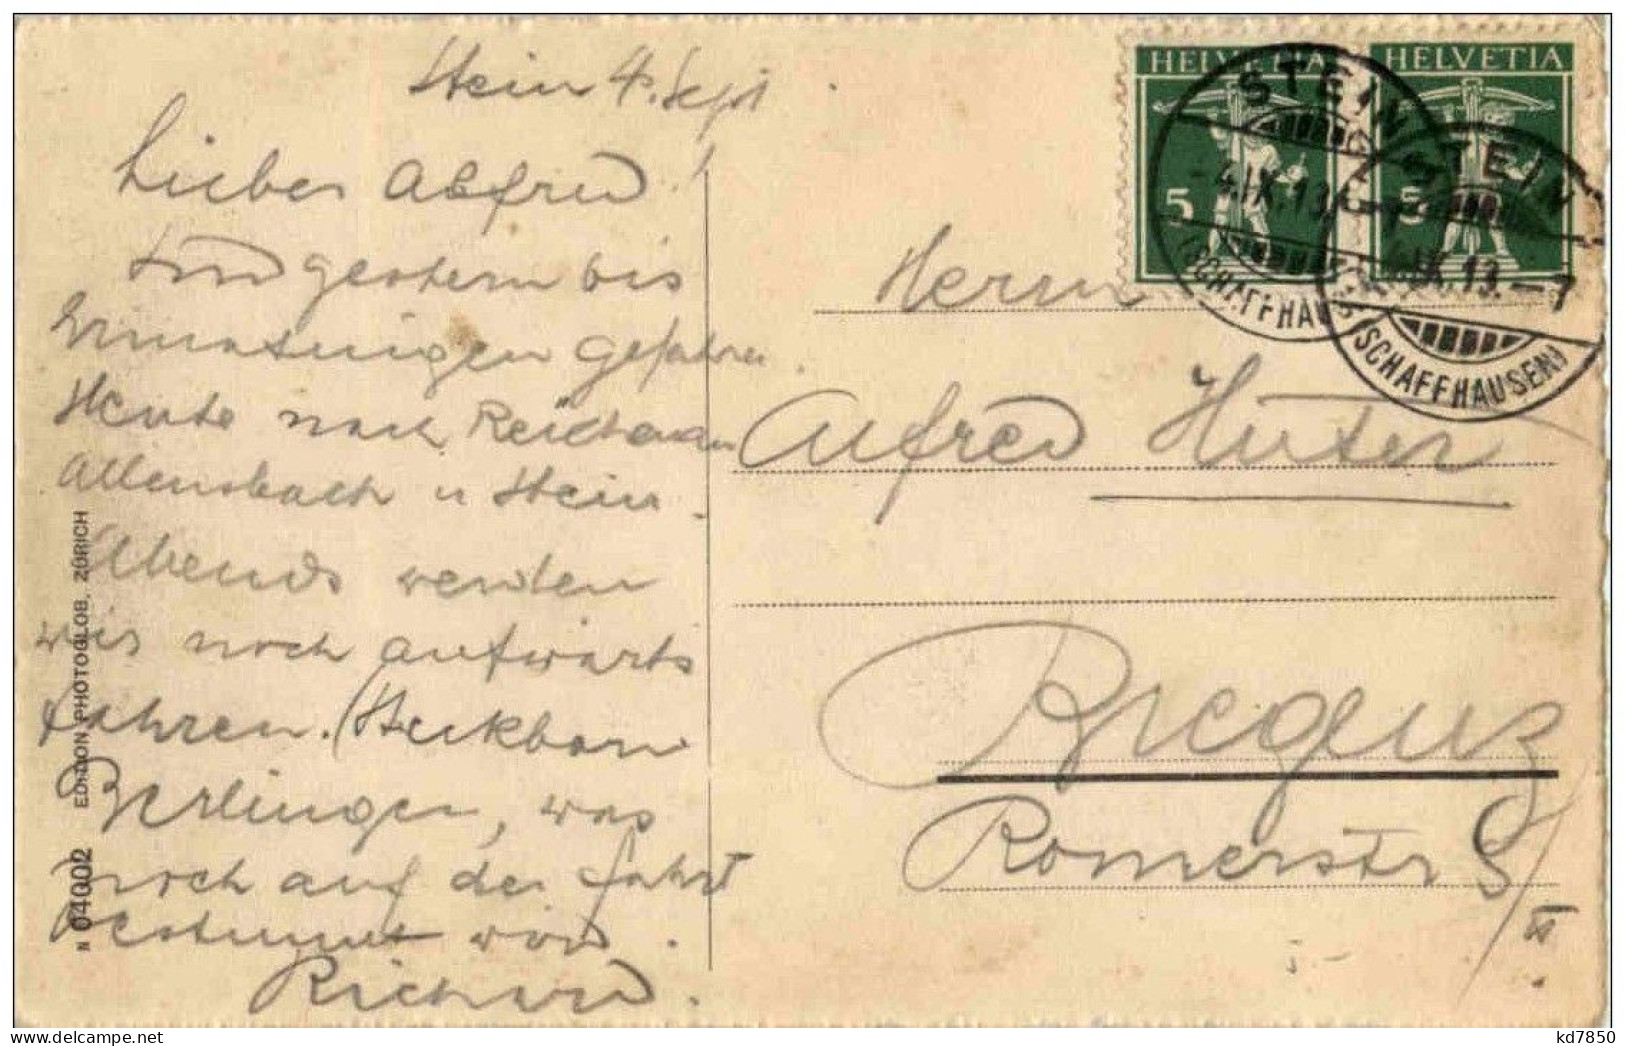 Stein 4. Sept
Lieber Alfred!
Sind gestern bis
Ermatingen gefahren.
Heute nach Reichenau
Allensbach u Stein.
Abends werden
wir noch aufwärts
fahren. (Steckborn
Berlingen, was
noch auf der Fahrt
bestimmt wird.
Richard.
N 04002 EDITION PHOTOGLOB, ZÜRICH
HELVETIA HELVETIA
5 5
STEIN
4.IX.13
(SCHAFFHAUSEN)
STEIN
4.IX.13.-7
(SCHAFFHAUSEN)
Herrn
Alfred Huter
Bregenz
Romerstr 8/II.
kd7850